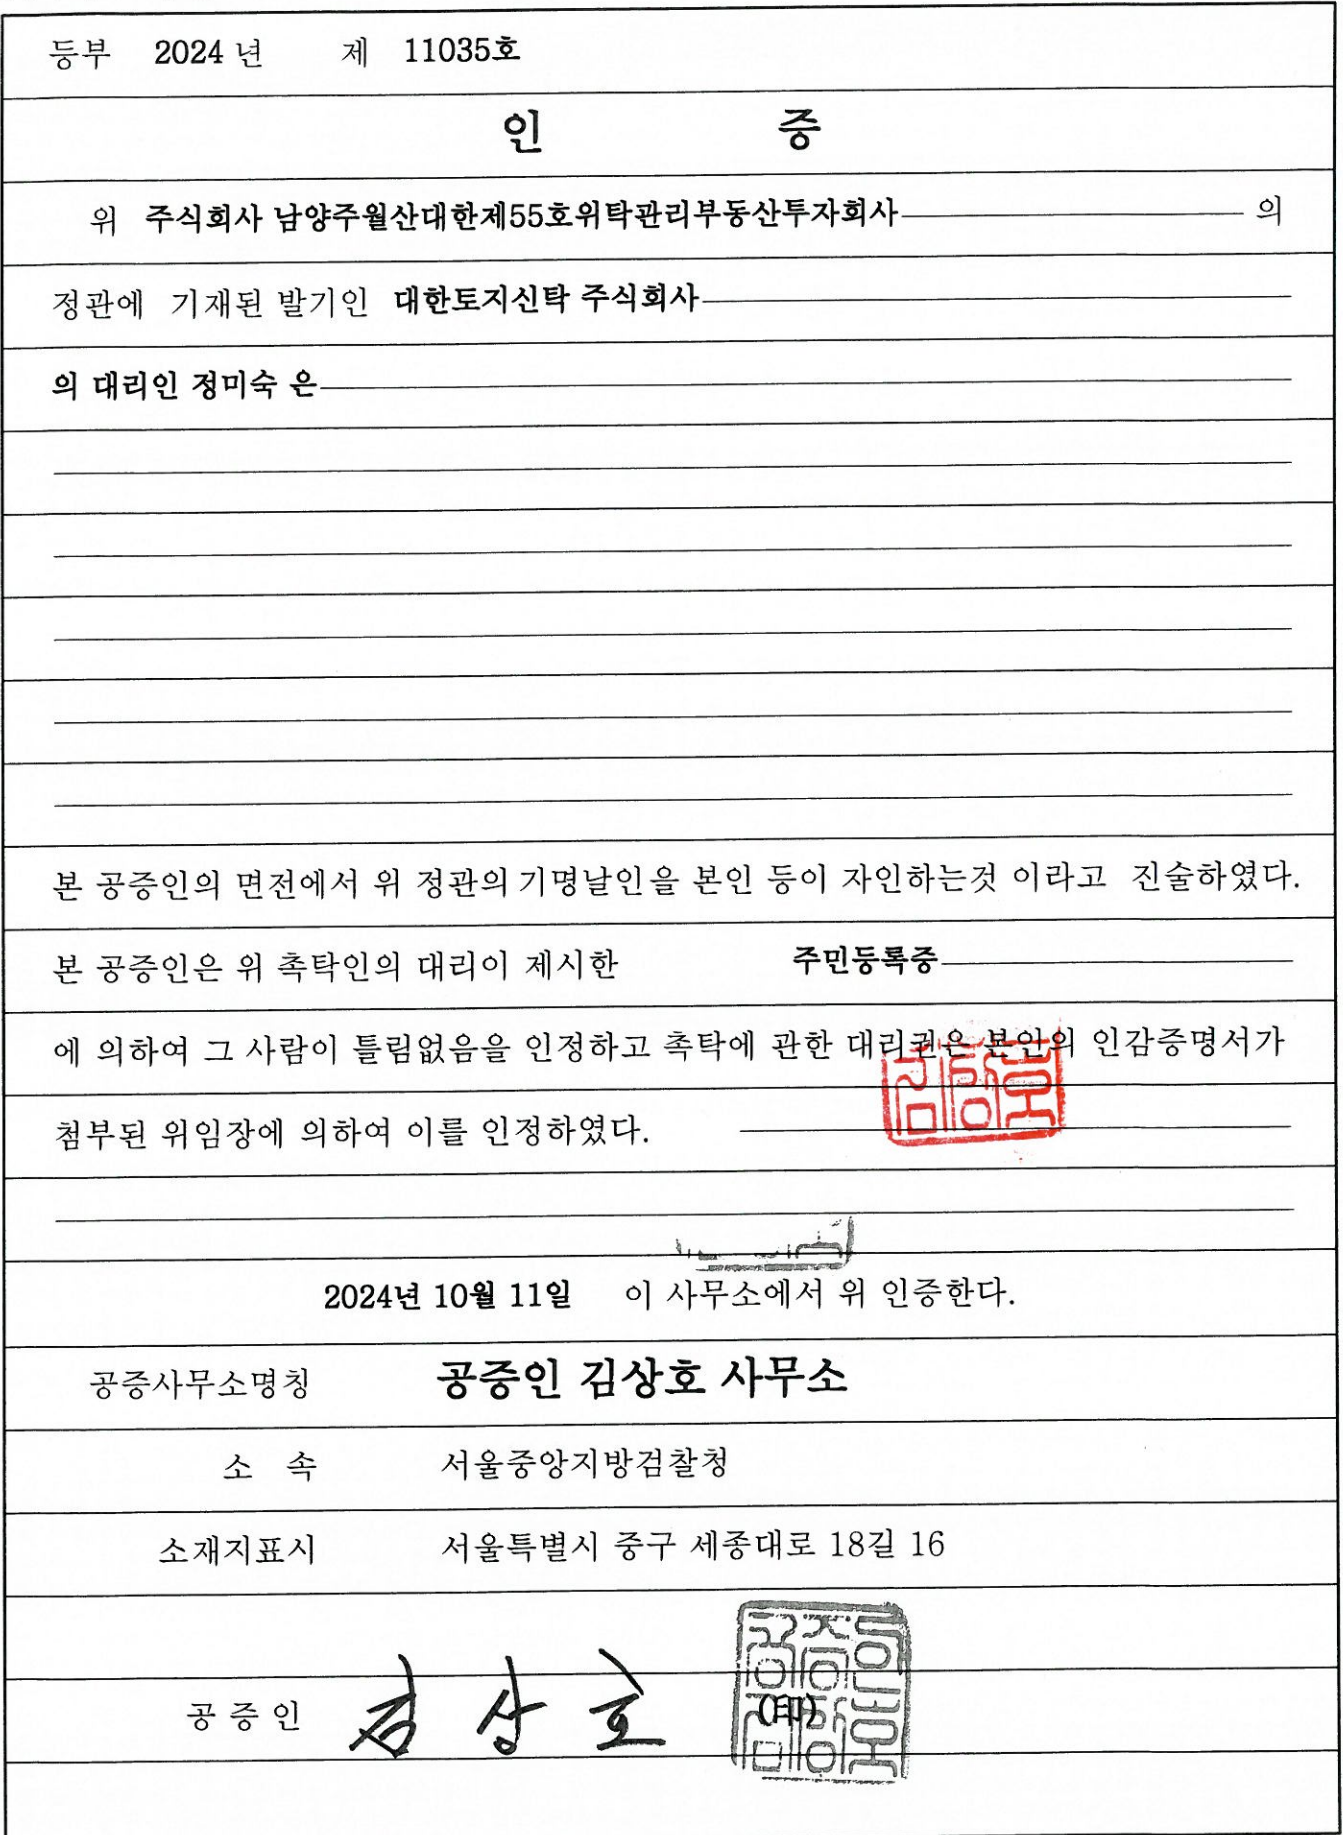 등부 2024 년 제 11035호
인 증
위 주식회사 남양주월산대한제55호위탁관리부동산투자회사 의
정관에 기재된 발기인 대한토지신탁 주식회사
의 대리인 정미숙 은
본 공증인의 면전에서 위 정관의 기명날인을 본인 등이 자인하는것 이라고 진술하였다.
본 공증인은 위 촉탁인의 대리이 제시한 주민등록증
에 의하여 그 사람이 틀림없음을 인정하고 촉탁에 관한 대리권은 본인의 인감증명서가
첨부된 위임장에 의하여 이를 인정하였다.
김상호
2024년 10월 11일 이 사무소에서 위 인증한다.
공증사무소명칭 공증인 김상호 사무소
소 속 서울중앙지방검찰청
소재지표시 서울특별시 중구 세종대로 18길 16
공증인 김상호 (印)
공증인김상호